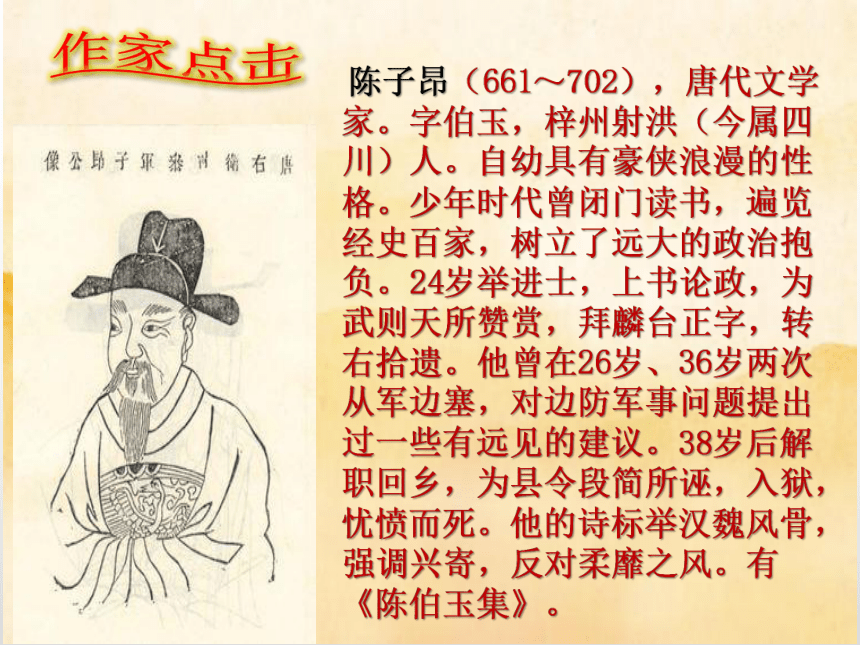 作家点击
唐右衛胄叅軍子昂公像
陈子昂（661～702），唐代文学
家。字伯玉，梓州射洪（今属四
川）人。自幼具有豪侠浪漫的性
格。少年时代曾闭门读书，遍览
经史百家，树立了远大的政治抱
负。24岁举进士，上书论政，为
武则天所赞赏，拜麟台正字，转
右拾遗。他曾在26岁、36岁两次
从军边塞，对边防军事问题提出
过一些有远见的建议。38岁后解
职回乡，为县令段简所诬，入狱，
忧愤而死。他的诗标举汉魏风骨，
强调兴寄，反对柔靡之风。有
《陈伯玉集》。